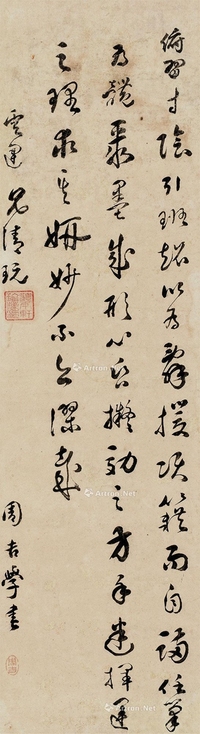 俯習寸陰引班超以為辭援項籍而自滿任筆
為體聚墨成形心昏擬效之方手迷揮運
之理求其妍妙不亦謬哉
兄清玩
周吉學書